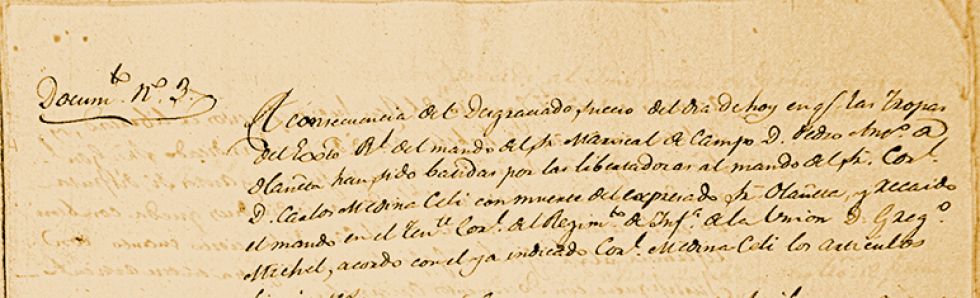 Docum.to N.o 3.
A consecuencia del Desgraciado suceso del dia de hoy en q.e las Tropas
del Exto R.l del mando del Sr. Mariscal de Campo D. Pedro Ant.o de
Olañeta han sido batidas por las libertadoras al mando del Sr. Cor.l
D. Carlos Medina Celi con muerte del expresado Sr. Olañeta, y recaido
el mando en el Ten.te Cor.l del Regim.to de Inf.a de la Union D. Greg.o
Michel, acordo con el ya indicado Cor.l Medina Celi los articulos